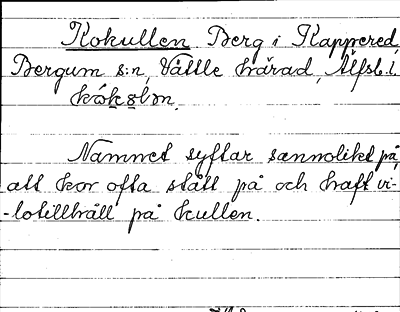 Kokullen Berg i Kappered,
Bergum s:n, Vättle härad, Älfsb. l.
kókələn.
Namnet syftar sannolikt på,
att kor ofta stått på och haft vi-
-lotillhåll på kullen.